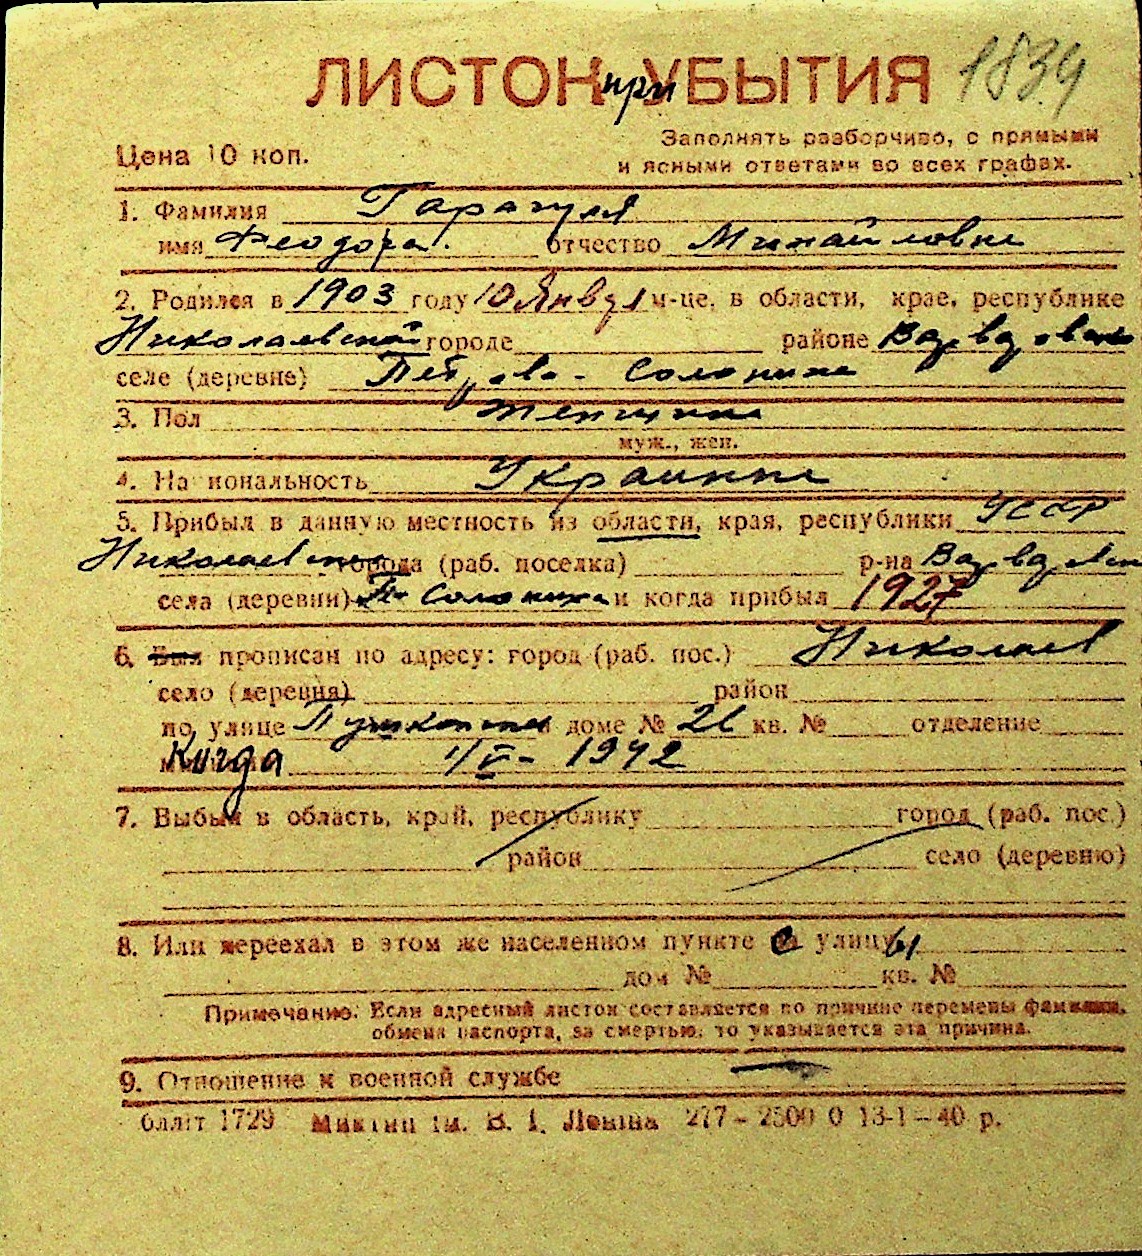 ЛИСТОК при УБЫТИЯ 1839
Цена 10 коп.
Заполнять разборчиво, с прямыми
и ясными ответами во всех графах.
1. Фамилия Гарагуля
имя Феодора отчество Михайловна
2. Родился в 1903 году 10 Января м-це, в области, крае, республике
Николаевской городе районе
селе (деревне) Петрова-Солониха
3. Пол женщина
муж., жен.
4. Национальность Украинка
5. Прибыл в данную местность из области, края, республики УССР
Николаевской города (раб. поселка) р-на
села (деревни) П-Солониха и когда прибыл 1927
6. Был прописан по адресу: город (раб. пос.) Николаев
село (деревня) район
по улице Пушкинская доме № кв. № отделение
Когда 1/V- 1942
7. Выбыл в область, край, республику город (раб. пос.)
район село (деревню)
8. Или переехал в этом же населенном пункте с улицы
дом № кв. №
Примечание: Если адресный листок составляется по причине перемены фамилии,
обмена паспорта, за смертью, то указывается эта причина.
9. Отношение к военной службе —
1729 им. В. І. Леніна 277-2500 0 13-1-40 р.